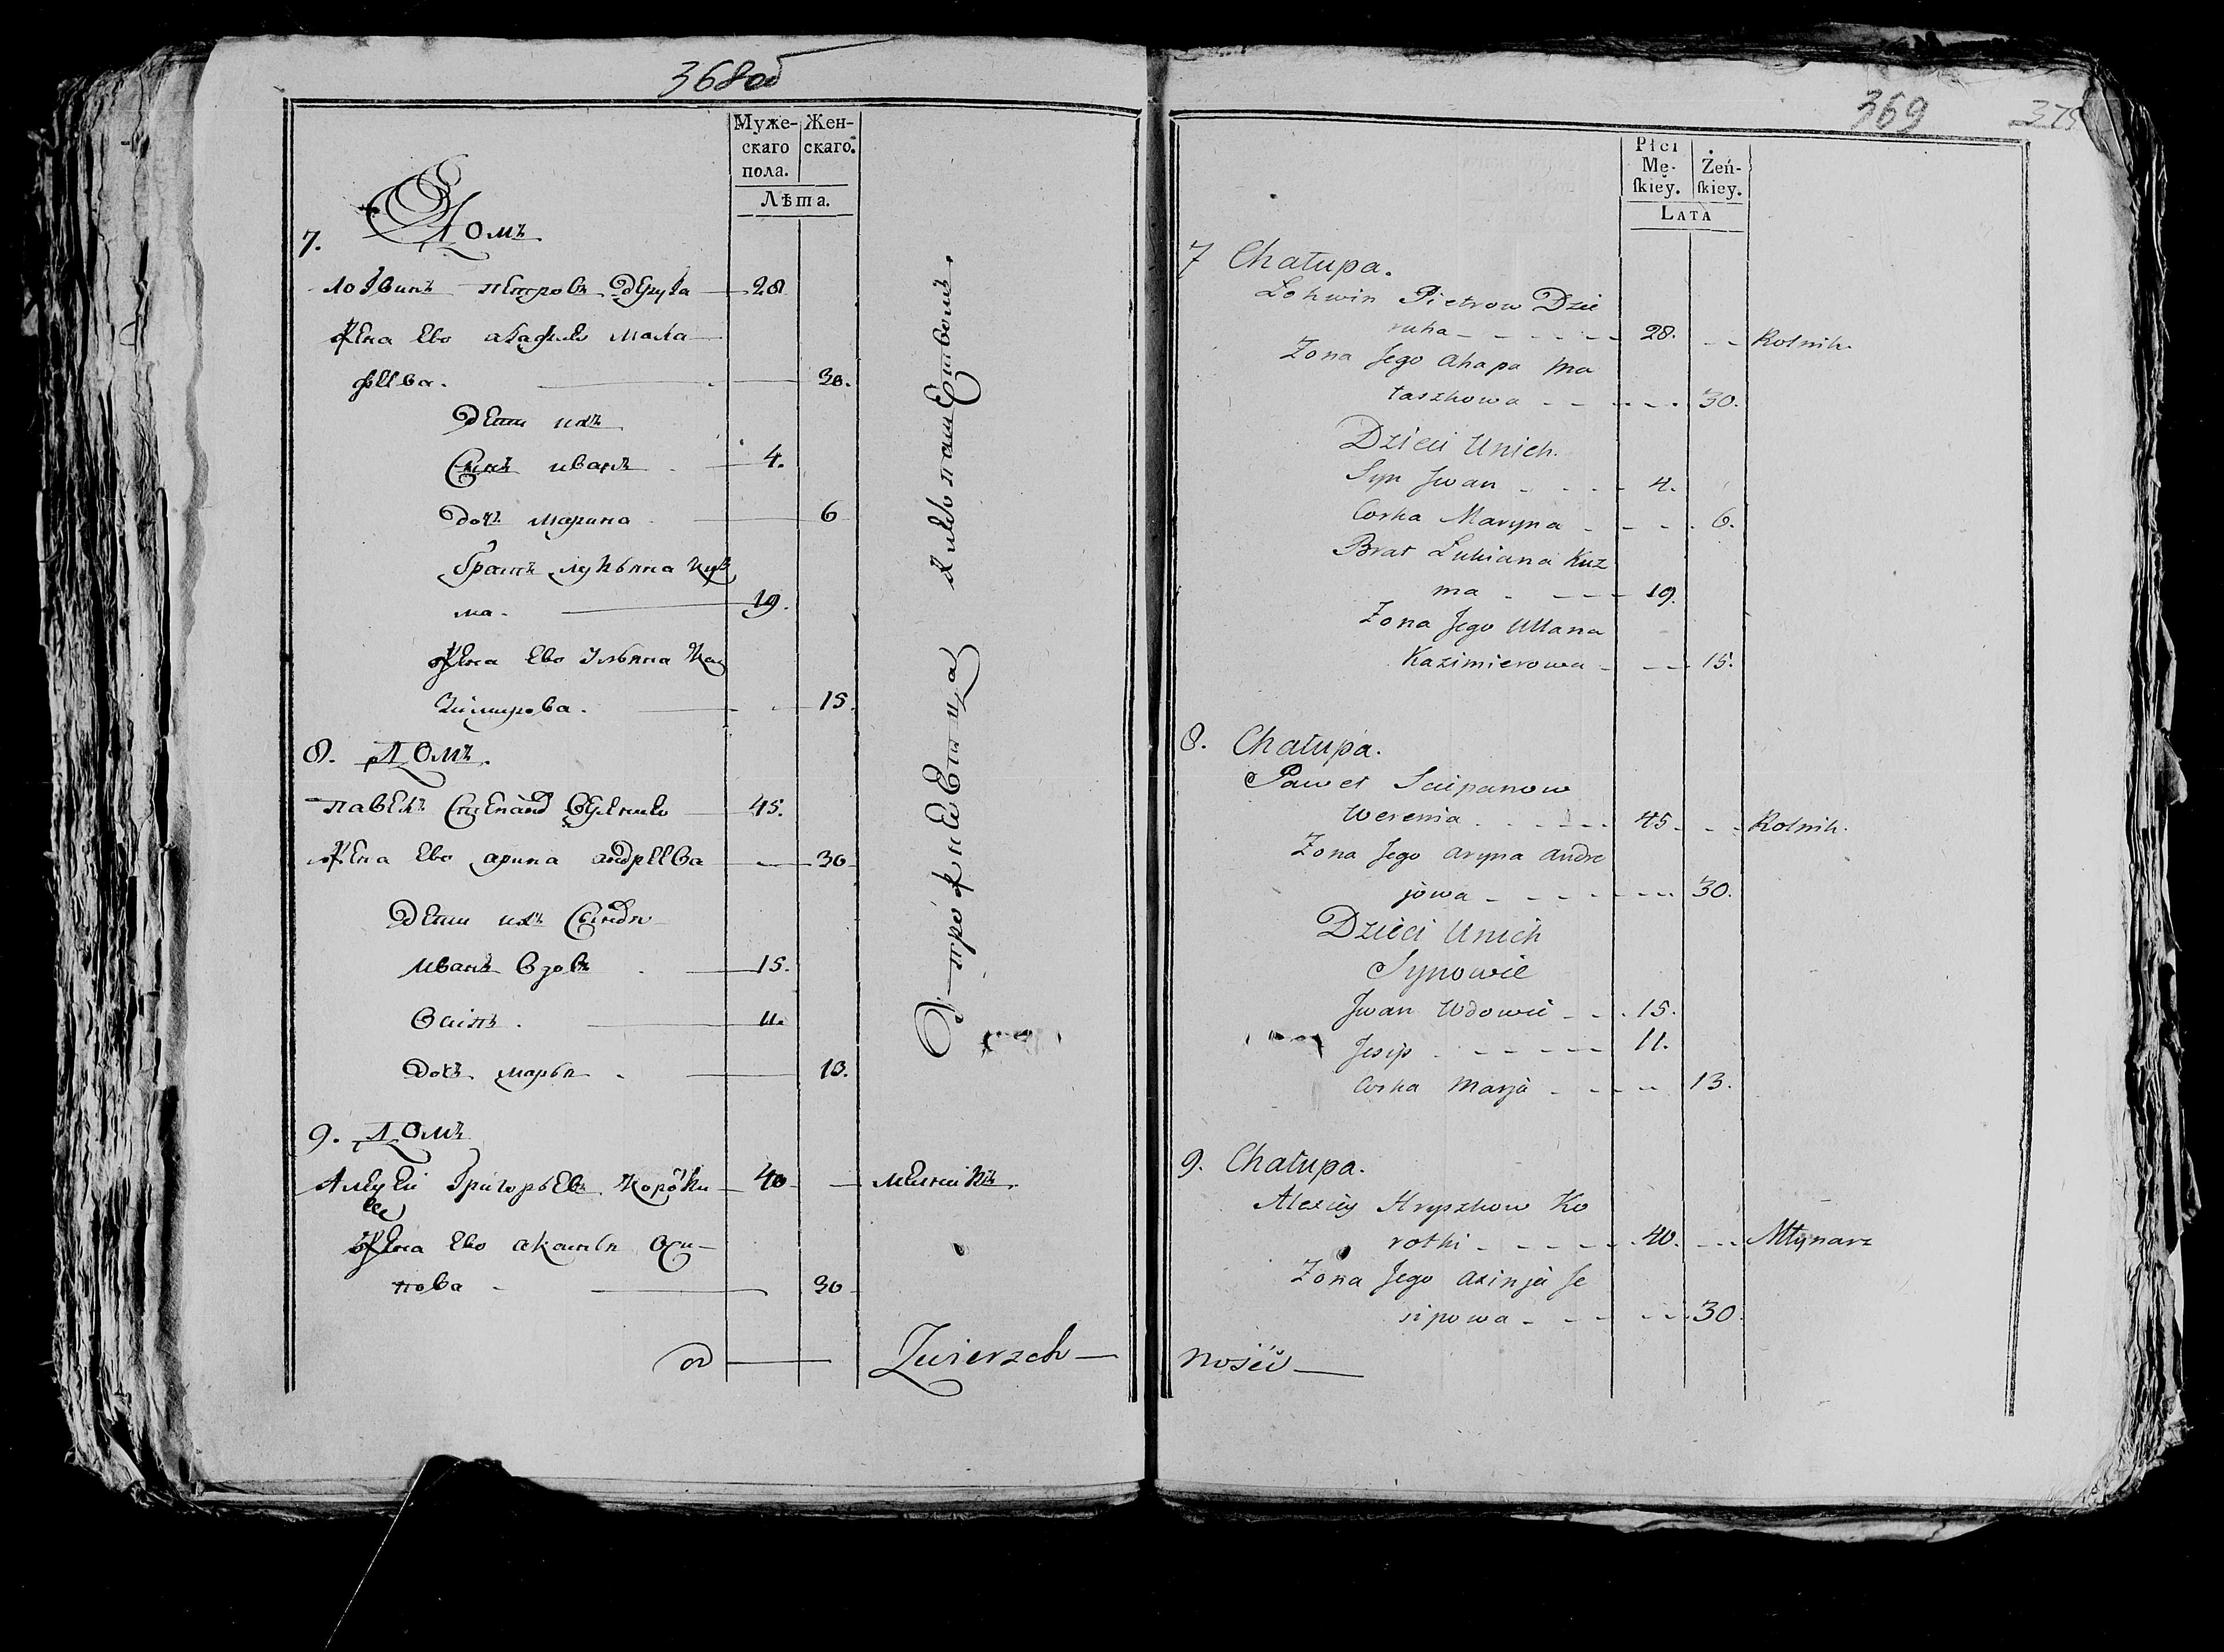 368об
Муже- Жен-
скаго скаго.
пола.
Лѣта.
7. Домъ
Логвинъ Петровъ Деруга 28
Жена Ево Агафия Мала
феева. 30.
Дети ихъ
Сынъ иванъ 4.
Дочь марина 6
братъ лукьяна куз
ма. 19.
Жена Ево Ульяна Ка
зимирова. 15.
8. Домъ.
павелъ Степанов Вереня 45.
Жена Ево арина андреева 30
Дети ихъ Сыновья
Иванъ вдовъ 15.
Осипъ. 11.
Дочь марья 13.
9. Домъ
Алексей Григорьевъ Коротки 40 мелникъ
Жена Ево аксинья Оси-
пова 30
Zwierzch-
369
375
Płci
Mę- Żeń-
ſkiey. ſkiey.
LATA
7 Chałupa.
Lohwin Pietrow Dzie
ruha 28. Rolnik.
Zona Jego Ahapa Ma
łaszkowa 30.
Dzieci Unich.
Syn Jwan 4.
Corka Maryna 6.
Brat Lukiana Kuz
ma 19.
Zona Jego Ullana
Kazimierowa 15.
8. Chałupa.
Paweł Sciepanow
Werenia 45. Rolnik.
Zona Jego Aryna Andre
jowa 30.
Dzieci Unich
Synowie
Jwan Wdowii 15.
Jesip 11.
Corka Marja 13.
9. Chałupa.
Alexiey Hryszkow Ko
rotki 40. Młynarz
Zona Jego Axinja Je
sipowa 30.
ności